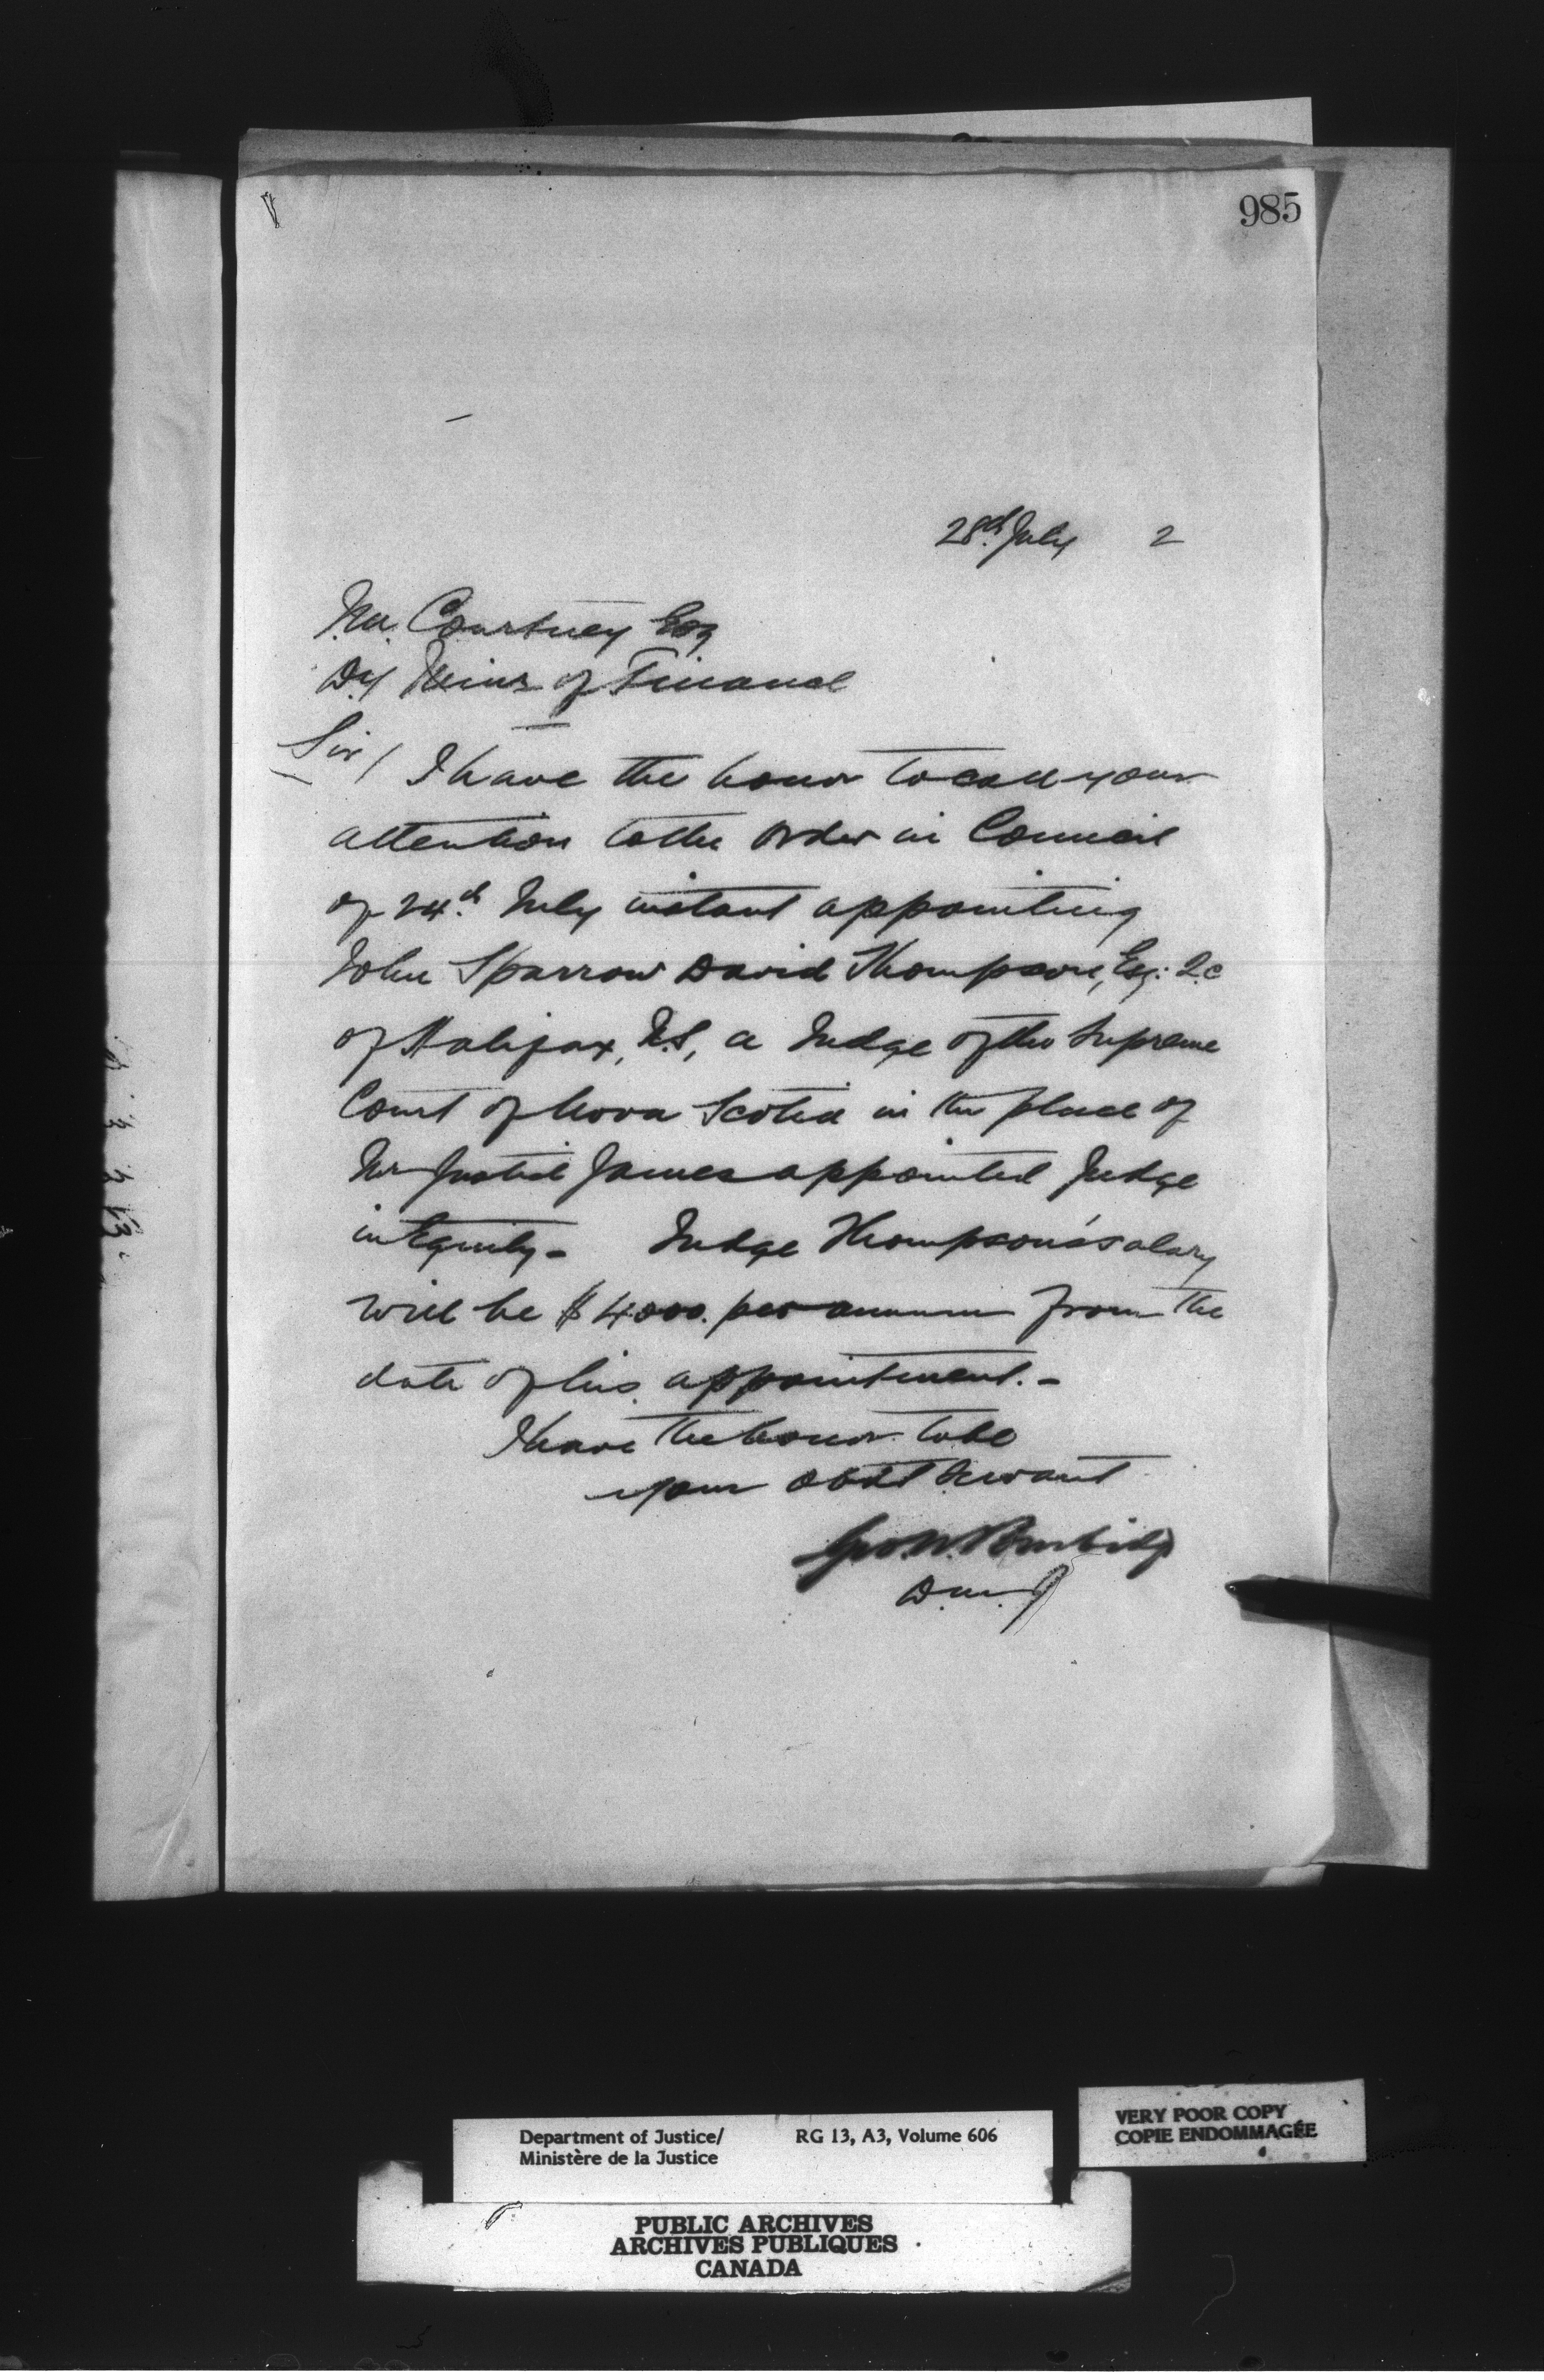 985
28th July 2
J.M. Courtney Esq
Dy Minr of Finance
Sir/ I have the honor to call your
attention to the Order in Council
of 24th July instant appointing
John Sparrow David Thompson, Esq: Q.C
of Halifax, N.S, a Judge of the Supreme
Court of Nova Scotia in the place of
Mr Justice James appointed Judge
in Equity - Judge Thompson's salary
will be $4000. per annum from the
date of his appointment. -
I have the honor to be
your obdt servant
Geo. W. Burbidge
D.M.J
Department of Justice/ RG 13, A3, Volume 606
Ministère de la Justice
VERY POOR COPY
COPIE ENDOMMAGÉE
PUBLIC ARCHIVES
ARCHIVES PUBLIQUES
CANADA